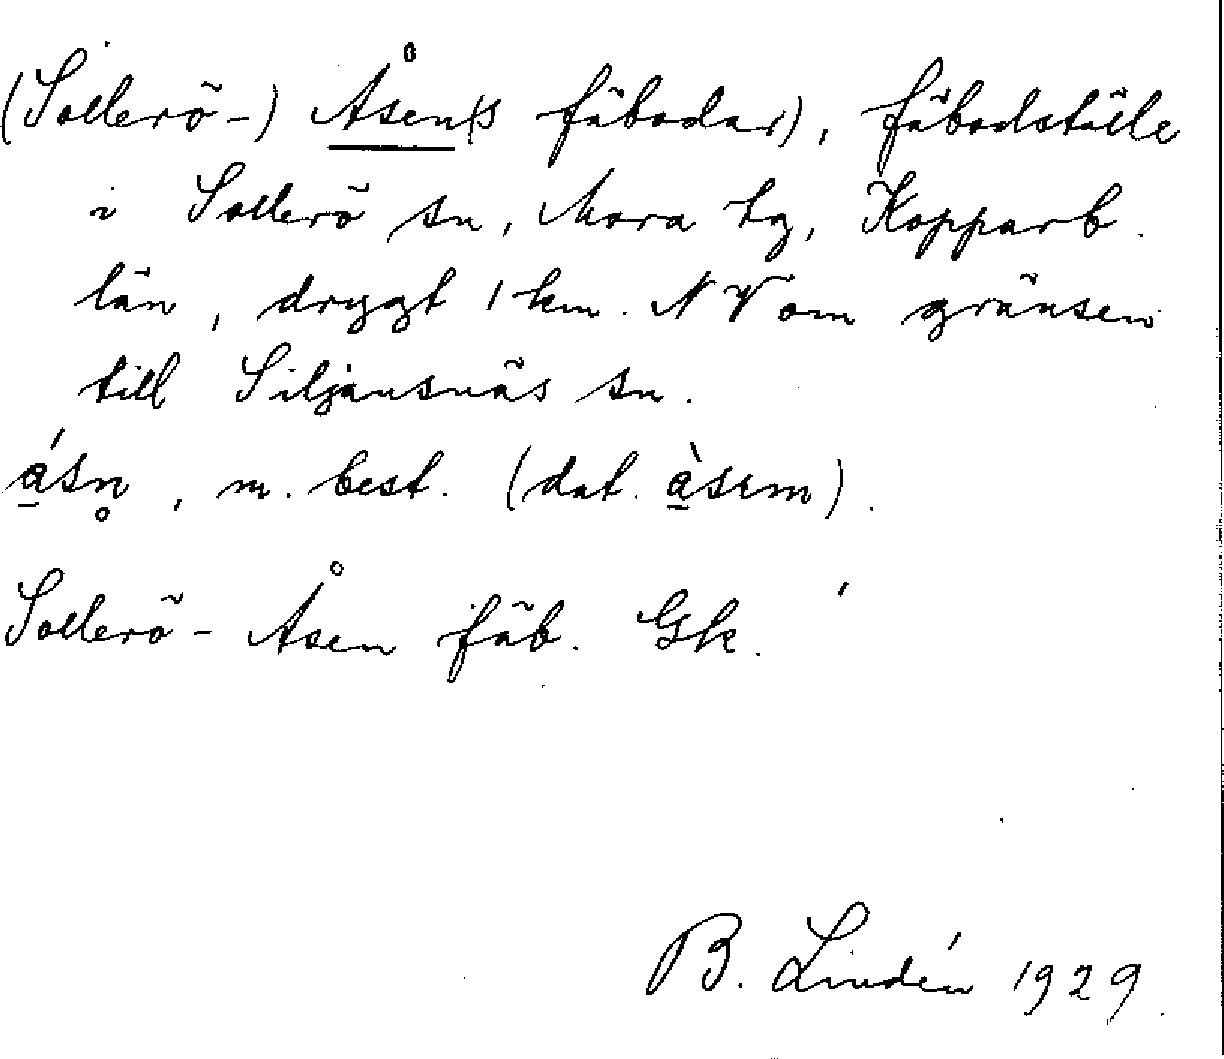 (Sollerö-) Åsen(s fäbodar), fäbodställe
i Sollerö sn, Mora tg, Kopparb.
län, drygt 1 km. NV om gränsen
till Siljansnäs sn.
á̲sn̥, m. best. (dat. à̲sɪm).
Sollerö-Åsen fäb. Gk.
B. Lindén 1929.